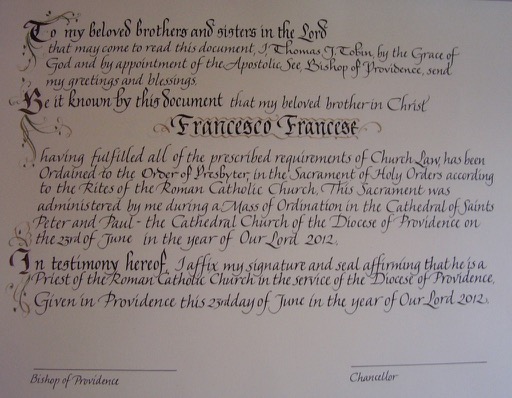 To my beloved brothers and sisters in the Lord
that may come to read this document, I, Thomas, J. Tobin, by the Grace of
God and by appointment of the Apostolic See, Bishop of Providence, send
my greetings and blessings.
Be it known by this document that my beloved brother in Christ
Francesco Francese
having fulfilled all of the prescribed requirements of Church Law, has been
Ordained to the Order of Presbyter, in the Sacrament of Holy Orders according
to the Rites of the Roman Catholic Church, This Sacrament was
administered by me during a Mass of Ordination in the Cathedral of Saints
Peter and Paul - the Cathedral Church of the Diocese of Providence on
the 23rd of June in the year of Our Lord 2012.
In testimony hereof, I affix my signature and seal affirming that he is a
Priest of the Roman Catholic Church in the service of the Diocese of Providence,
Given in Providence this 23rd day of June in the year of Our Lord 2012.
Bishop of Providence
Chancellor